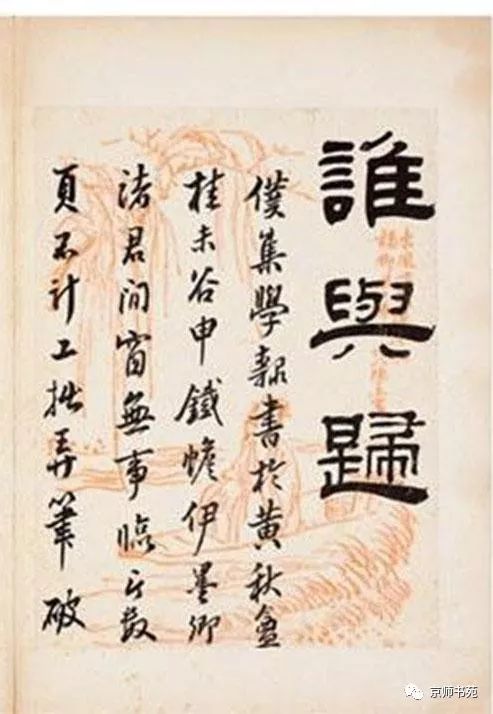 誰與歸
僕集學隸書於黃秋盦
桂未谷申鐵蟾伊墨卿
諸君間窗無事臨此數
頁不計工拙弄筆破
京师书苑